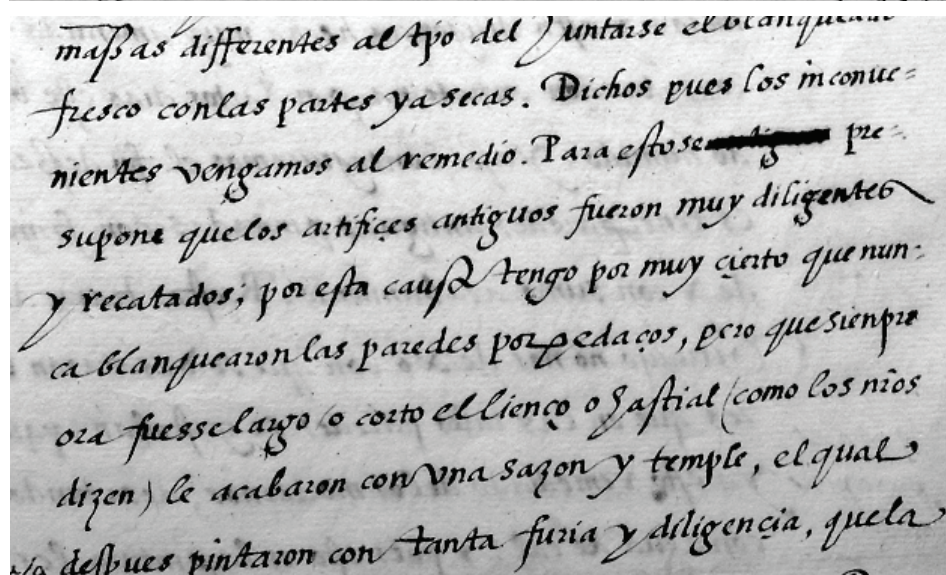 massas differentes al tp̃o del Juntarse el blanqueado
fresco con las partes ya secas. Dichos pues los inconue=
nientes vengamos al remedio. Para esto se pre=
supone que los artifiçes antiguos fueron muy diligentes
y recatados; por esta causa tengo por muy çierto que nun=
ca blanquearon las paredes por pedaços, pero que sienpre
ora fuesse largo (o corto el lienço o hastial (como los nr̃os
dizen) le acabaron con vna sazon y temple, el qual
despues pintaron con tanta furia y diligençia, que la